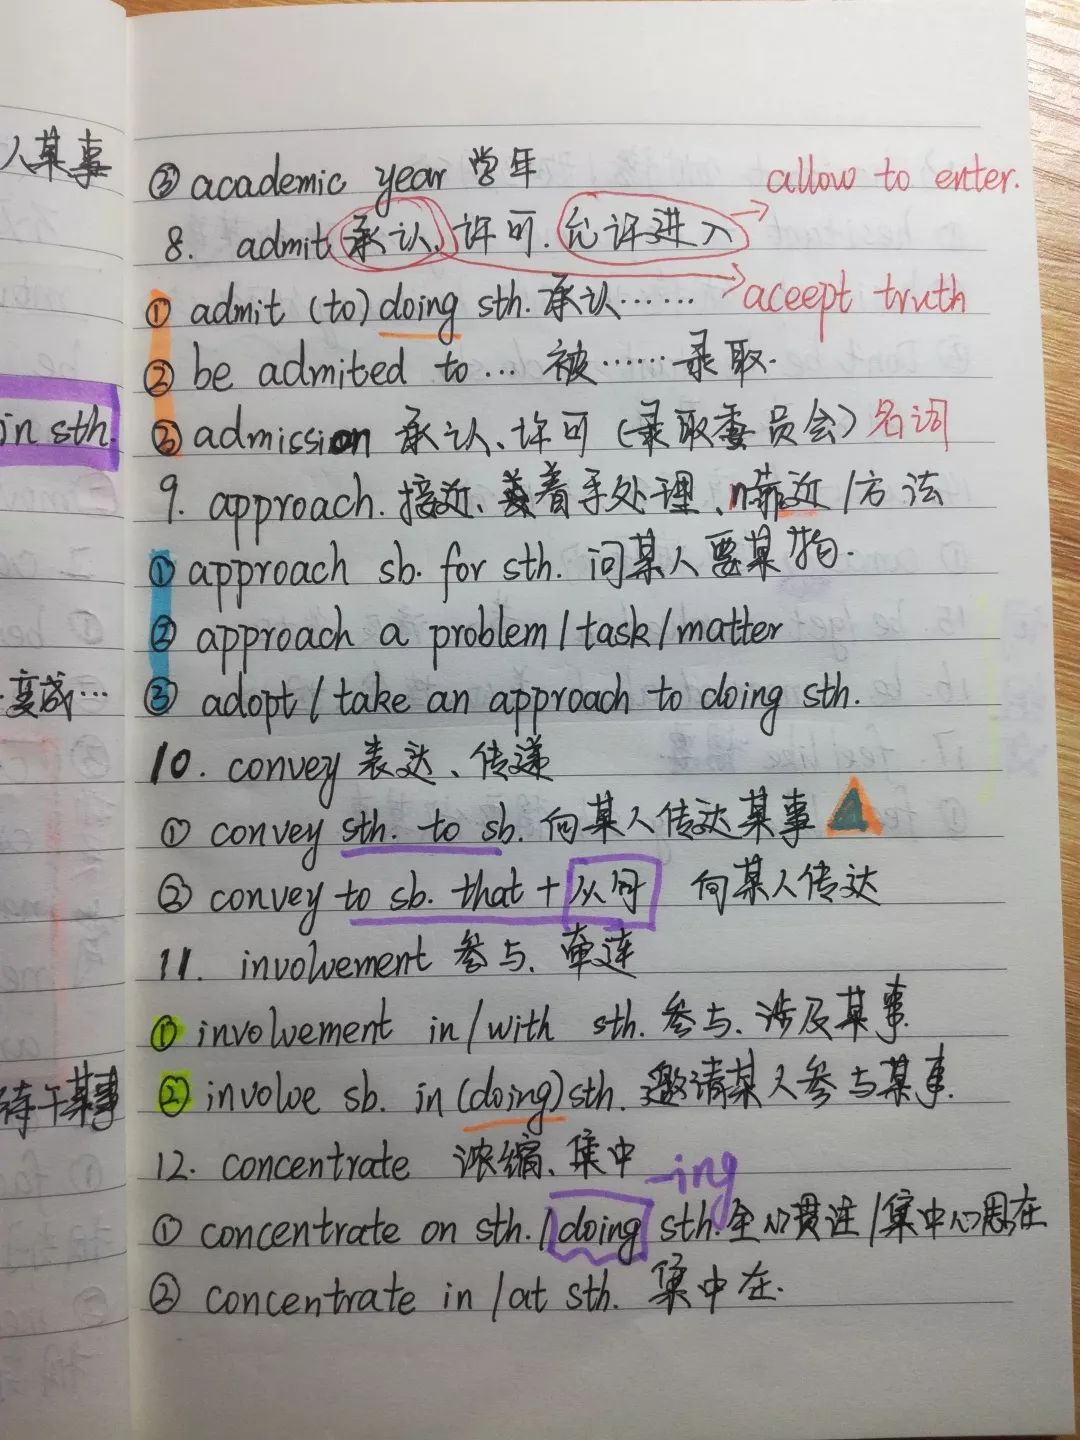 人某事
in sth.
变成…
待干某事
③ academic year 学年
allow to enter.
8. admit 承认、许可、允许进入
① admit (to) doing sth. 承认……
aceept truth
② be admited to … 被……录取.
③ admission 承认、许可 (录取委员会) 名词
9. approach. 接近、着手处理、n靠近/方法
① approach sb. for sth. 问某人要某物.
② approach a problem/task/matter
③ adopt/take an approach to doing sth.
10. convey 表达、传递
① convey sth. to sb. 向某人传达某事
② convey to sb. that + 从句 向某人传达
11. involvement 参与、牵连
① involvement in/with sth. 参与、涉及某事
② involve sb. in (doing) sth. 邀请某人参与某事.
12. concentrate 浓缩、集中
-ing
① concentrate on sth./doing sth. 全心贯注/集中心思在
② concentrate in/at sth. 集中在.